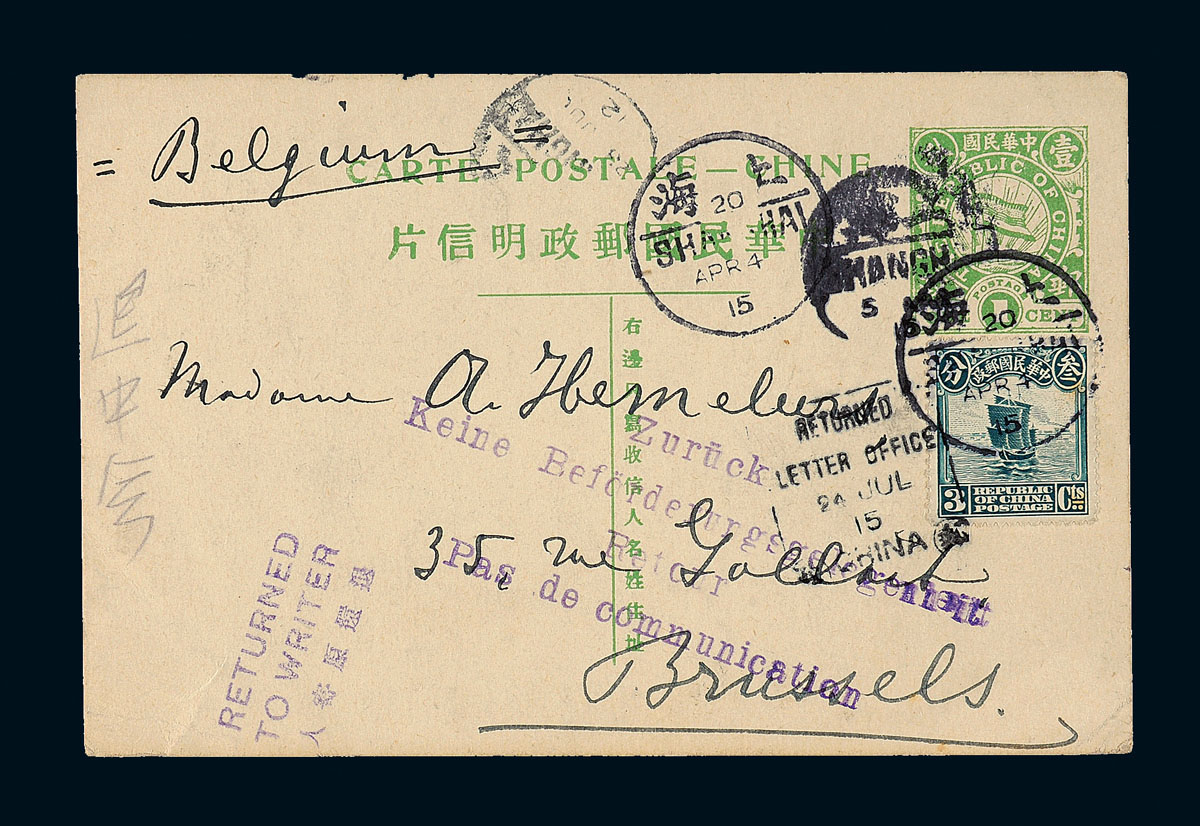 = Belgium =
CARTE POSTALE — CHINE
片信明政郵國民華
國民華中
壹
REPUBLIC OF CHINA
POSTAGE
1
CENT
上海
20
SHANGHAI
APR 4
15
SHANGHAI
5
上海
20
APR 4
15
Madame A.
右邊 寫收信人名姓住址
Zurück
Keine Beförderungsgelegenheit
Retour
Pas de communication
RETURNED
LETTER OFFICE
24 JUL
15
CHINA
分
區郵國民華中
叁
3
REPUBLIC
OF CHINA
POSTAGE
Cts
35, rue Gallait
Brussels.
RETURNED
TO WRITER